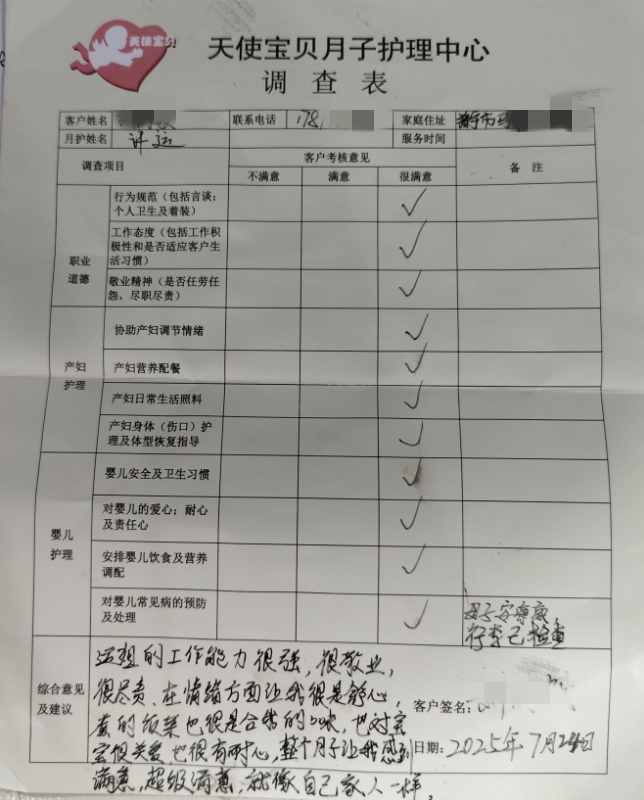 美使宝贝
天使宝贝月子护理中心
调查表
客户姓名 联系电话 178 家庭住址
月护姓名 许运 服务时间
调查项目 客户考核意见 备 注
不满意 满意 很满意
职业道德
行为规范（包括言谈；个人卫生及着装） ✓
工作态度（包括工作积极性和是否适应客户生活习惯） ✓
敬业精神（是否任劳任怨、尽职尽责） ✓
产妇护理
协助产妇调节情绪 ✓
产妇营养配餐 ✓
产妇日常生活照料 ✓
产妇身体（伤口）护理及体型恢复指导 ✓
婴儿护理
婴儿安全及卫生习惯 ✓
对婴儿的爱心；耐心及责任心 ✓
安排婴儿饮食及营养调配 ✓
对婴儿常见病的预防及处理 ✓ 母子安康
行李已检查
综合意见及建议
运姐的工作能力很强，很敬业，
很尽责、在情绪方面让我很是舒心，
客户签名：
的饭菜也很是合我的口味，也对宝
宝很关爱也很有耐心，整个月子让我感到
日期：2025年7月24日
满意，超级满意，就像自己家人一样。